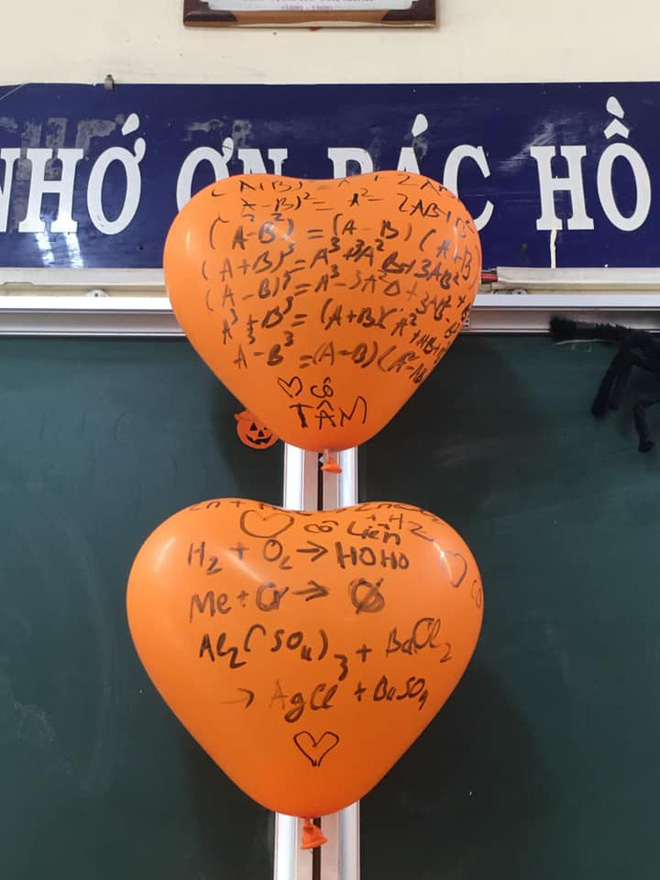 NHỚ ƠN BÁC HỒ
(A-B)² = A² - 2AB+B
(A²-B²) = (A-B)(A+B
(A+B)³=A³+3A²B+3AB²+
(A-B)³=A³-3A²B+3AB²-
A³+B³=(A+B)(A²
A-B³=(A-B)(A²-AB
♡ cô
TÂM
+H2
♡ cô Liên
H₂ + O₂ → HOHO
Me + Cr → Ø
Al₂(SO₄)₃ + BaCl₂
→ AgCl + BaSO₄
♡